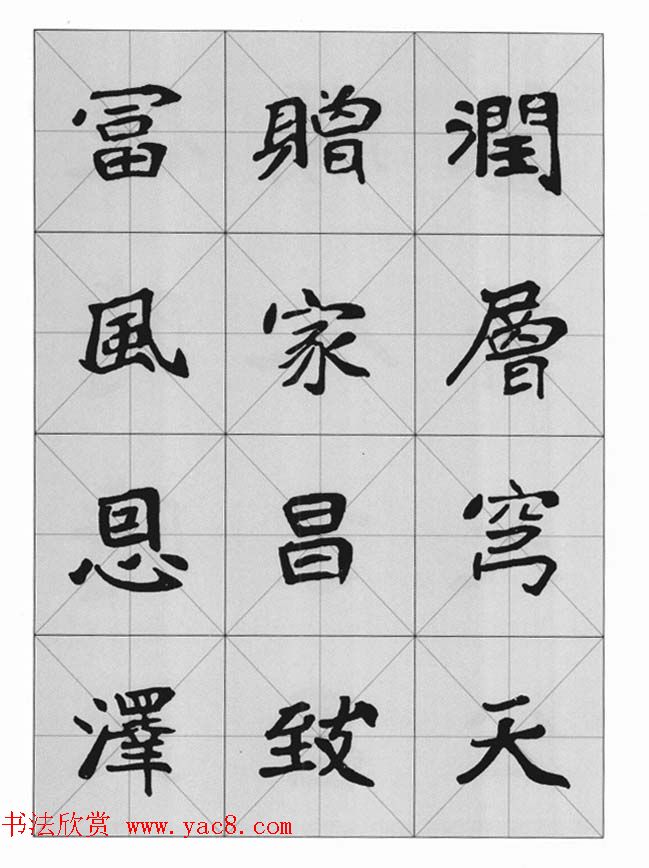 潤層穹天
贈家昌致
冨風恩澤
书法欣赏 www.yac8.com